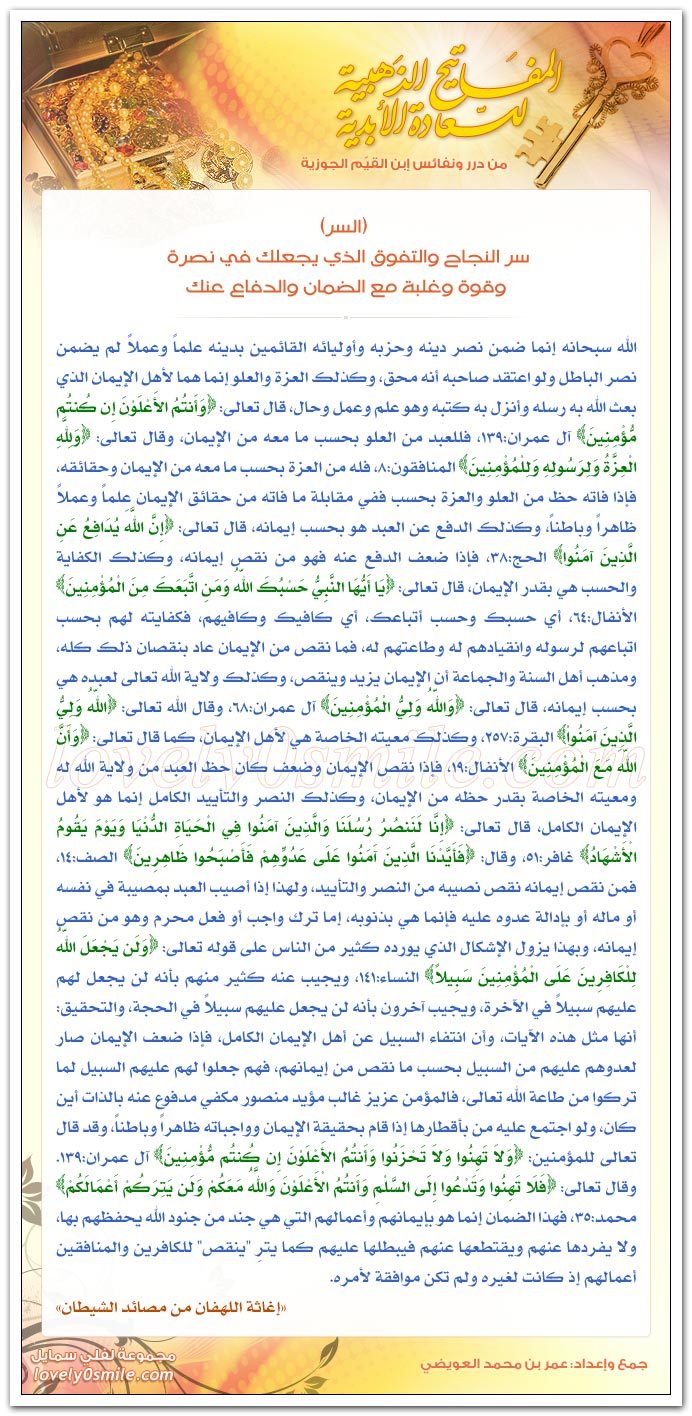 المفاتيح الذهبية
للسعادة الأبدية
من درر ونفائس إبن القيّم الجوزية
(السر)
سر النجاح والتفوق الذي يجعلك في نصرة
وقوة وغلبة مع الضمان والدفاع عنك
الله سبحانه إنما ضمن نصر دينه وحزبه وأوليائه القائمين بدينه علماً وعملاً لم يضمن
نصر الباطل ولو اعتقد صاحبه أنه محق، وكذلك العزة والعلو إنما هما لأهل الإيمان الذي
بعث الله به رسله وأنزل به كتبه وهو علم وعمل وحال، قال تعالى: ﴿وَأَنتُمُ الأَعْلَوْنَ إِن كُنتُم
مُّؤْمِنِينَ﴾ آل عمران:١٣٩، فللعبد من العلو بحسب ما معه من الإيمان، وقال تعالى: ﴿وَلِلَّهِ
الْعِزَّةُ وَلِرَسُولِهِ وَلِلْمُؤْمِنِينَ﴾ المنافقون:٨، فله من العزة بحسب ما معه من الإيمان وحقائقه،
فإذا فاته حظ من العلو والعزة بحسب ففي مقابلة ما فاته من حقائق الإيمان علماً وعملاً
ظاهراً وباطناً، وكذلك الدفع عن العبد هو بحسب إيمانه، قال تعالى: ﴿إِنَّ اللَّهَ يُدَافِعُ عَنِ
الَّذِينَ آمَنُوا﴾ الحج:٣٨، فإذا ضعف الدفع عنه فهو من نقص إيمانه، وكذلك الكفاية
والحسب هي بقدر الإيمان، قال تعالى: ﴿يَا أَيُّهَا النَّبِيُّ حَسْبُكَ اللّهُ وَمَنِ اتَّبَعَكَ مِنَ الْمُؤْمِنِينَ﴾
الأنفال:٦٤، أي حسبك وحسب أتباعك، أي كافيك وكافيهم، فكفايته لهم بحسب
اتباعهم لرسوله وانقيادهم له وطاعتهم له، فما نقص من الإيمان عاد بنقصان ذلك كله،
ومذهب أهل السنة والجماعة أن الإيمان يزيد وينقص، وكذلك ولاية الله تعالى لعبده هي
بحسب إيمانه، قال تعالى: ﴿وَاللّهُ وَلِيُّ الْمُؤْمِنِينَ﴾ آل عمران:٦٨، وقال الله تعالى: ﴿اللّهُ وَلِيُّ
الَّذِينَ آمَنُواْ﴾ البقرة:٢٥٧، وكذلك معيته الخاصة هي لأهل الإيمان، كما قال تعالى: ﴿وَأَنَّ
اللّهَ مَعَ الْمُؤْمِنِينَ﴾ الأنفال:١٩، فإذا نقص الإيمان وضعف كان حظ العبد من ولاية الله له
ومعيته الخاصة بقدر حظه من الإيمان، وكذلك النصر والتأييد الكامل إنما هو لأهل
الإيمان الكامل، قال تعالى: ﴿إِنَّا لَنَنصُرُ رُسُلَنَا وَالَّذِينَ آمَنُوا فِي الْحَيَاةِ الدُّنْيَا وَيَوْمَ يَقُومُ
الْأَشْهَادُ﴾ غافر:٥١، وقال: ﴿فَأَيَّدْنَا الَّذِينَ آمَنُوا عَلَى عَدُوِّهِمْ فَأَصْبَحُوا ظَاهِرِينَ﴾ الصف:١٤،
فمن نقص إيمانه نقص نصيبه من النصر والتأييد، ولهذا إذا أصيب العبد بمصيبة في نفسه
أو ماله أو بإدالة عدوه عليه فإنما هي بذنوبه، إما ترك واجب أو فعل محرم وهو من نقص
إيمانه، وبهذا يزول الإشكال الذي يورده كثير من الناس على قوله تعالى: ﴿وَلَن يَجْعَلَ اللّهُ
لِلْكَافِرِينَ عَلَى الْمُؤْمِنِينَ سَبِيلاً﴾ النساء:١٤١، ويجيب عنه كثير منهم بأنه لن يجعل لهم
عليهم سبيلاً في الآخرة، ويجيب آخرون بأنه لن يجعل عليهم سبيلاً في الحجة، والتحقيق:
أنها مثل هذه الآيات، وأن انتفاء السبيل عن أهل الإيمان الكامل، فإذا ضعف الإيمان صار
لعدوهم عليهم من السبيل بحسب ما نقص من إيمانهم، فهم جعلوا لهم عليهم السبيل لما
تركوا من طاعة الله تعالى، فالمؤمن عزيز غالب مؤيد منصور مكفي مدفوع عنه بالذات أين
كان، ولو اجتمع عليه من بأقطارها إذا قام بحقيقة الإيمان وواجباته ظاهراً وباطناً، وقد قال
تعالى للمؤمنين: ﴿وَلاَ تَهِنُوا وَلاَ تَحْزَنُوا وَأَنتُمُ الأَعْلَوْنَ إِن كُنتُم مُّؤْمِنِينَ﴾ آل عمران:١٣٩.
وقال تعالى: ﴿فَلَا تَهِنُوا وَتَدْعُوا إِلَى السَّلْمِ وَأَنتُمُ الْأَعْلَوْنَ وَاللَّهُ مَعَكُمْ وَلَن يَتِرَكُمْ أَعْمَالَكُمْ﴾
محمد:٣٥، فهذا الضمان إنما هو بإيمانهم وأعمالهم التي هي جند من جنود الله يحفظهم بها،
ولا يفردها عنهم ويقتطعها عنهم فيبطلها عليهم كما يترِ "ينقص" للكافرين والمنافقين
أعمالهم إذ كانت لغيره ولم تكن موافقة لأمره.
«إغاثة اللهفان من مصائد الشيطان»
lovely0smile.com
جمع وإعداد: عمر بن محمد العويضي
مجموعة لفلي سمايل
lovely0smile.com